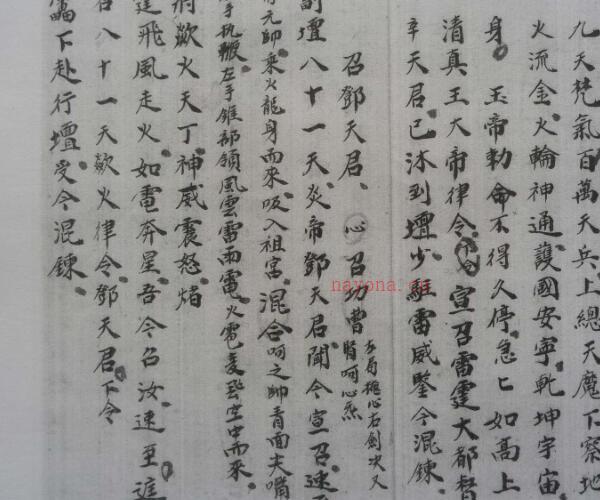 九天梵氣百萬天兵上總天魔下察地
火流金火輪神通護國安寧乾坤宇宙
身 玉帝勅命不得久停急匕如高上
清真王大帝律令 宣召雷霆大都督
辛天君已沐到壇少駐雷威鑒令混鍊
召鄧天君 心召功曹
左局 心右劍次又
腎呵心炁
副壇八十一天炎帝鄧天君聞令宣召速
元帥乘火龍身而來吸入祖宮混合呵之帥青面夫嘴
手执鞭左手錐部領風雲雷雨電火電 空中而來
歘火天丁神威震怒 
飛風走火如電奔星吾今召汝速至進
召八十一天歘火律令鄧天君下令
下赴行壇受令混鍊
nayona.cn